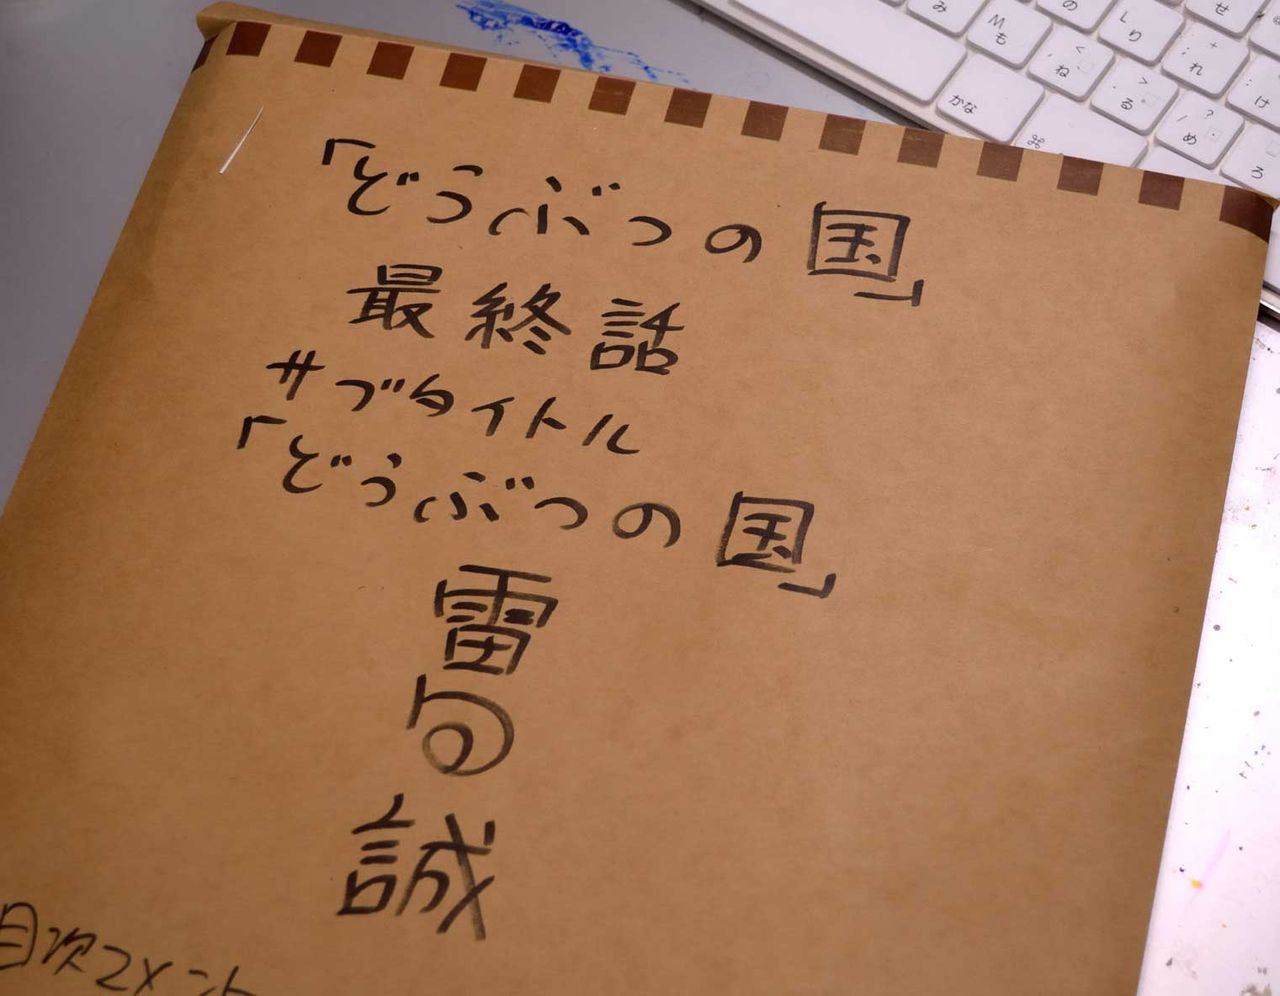 「どうぶつの国」
最終話
サブタイトル
「どうぶつの国」
雷句誠
目次コメント
み
M
も
の
L
り
せ
<
ね
>
る
+
れ
け
かな
⌘
?
め
ろ